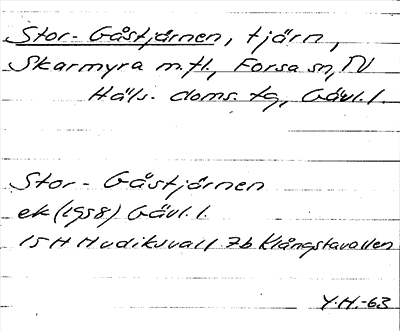 Stor-Gåstjärnen, tjärn,
Skarmyra m.fl., Forsa sn, N
Häls. doms. tg, Gävl. l.
Stor-Gåstjärnen
ek (1958) Gävl. l.
15H Hudiksvall 7b Klångstavallen
Y.H.-63